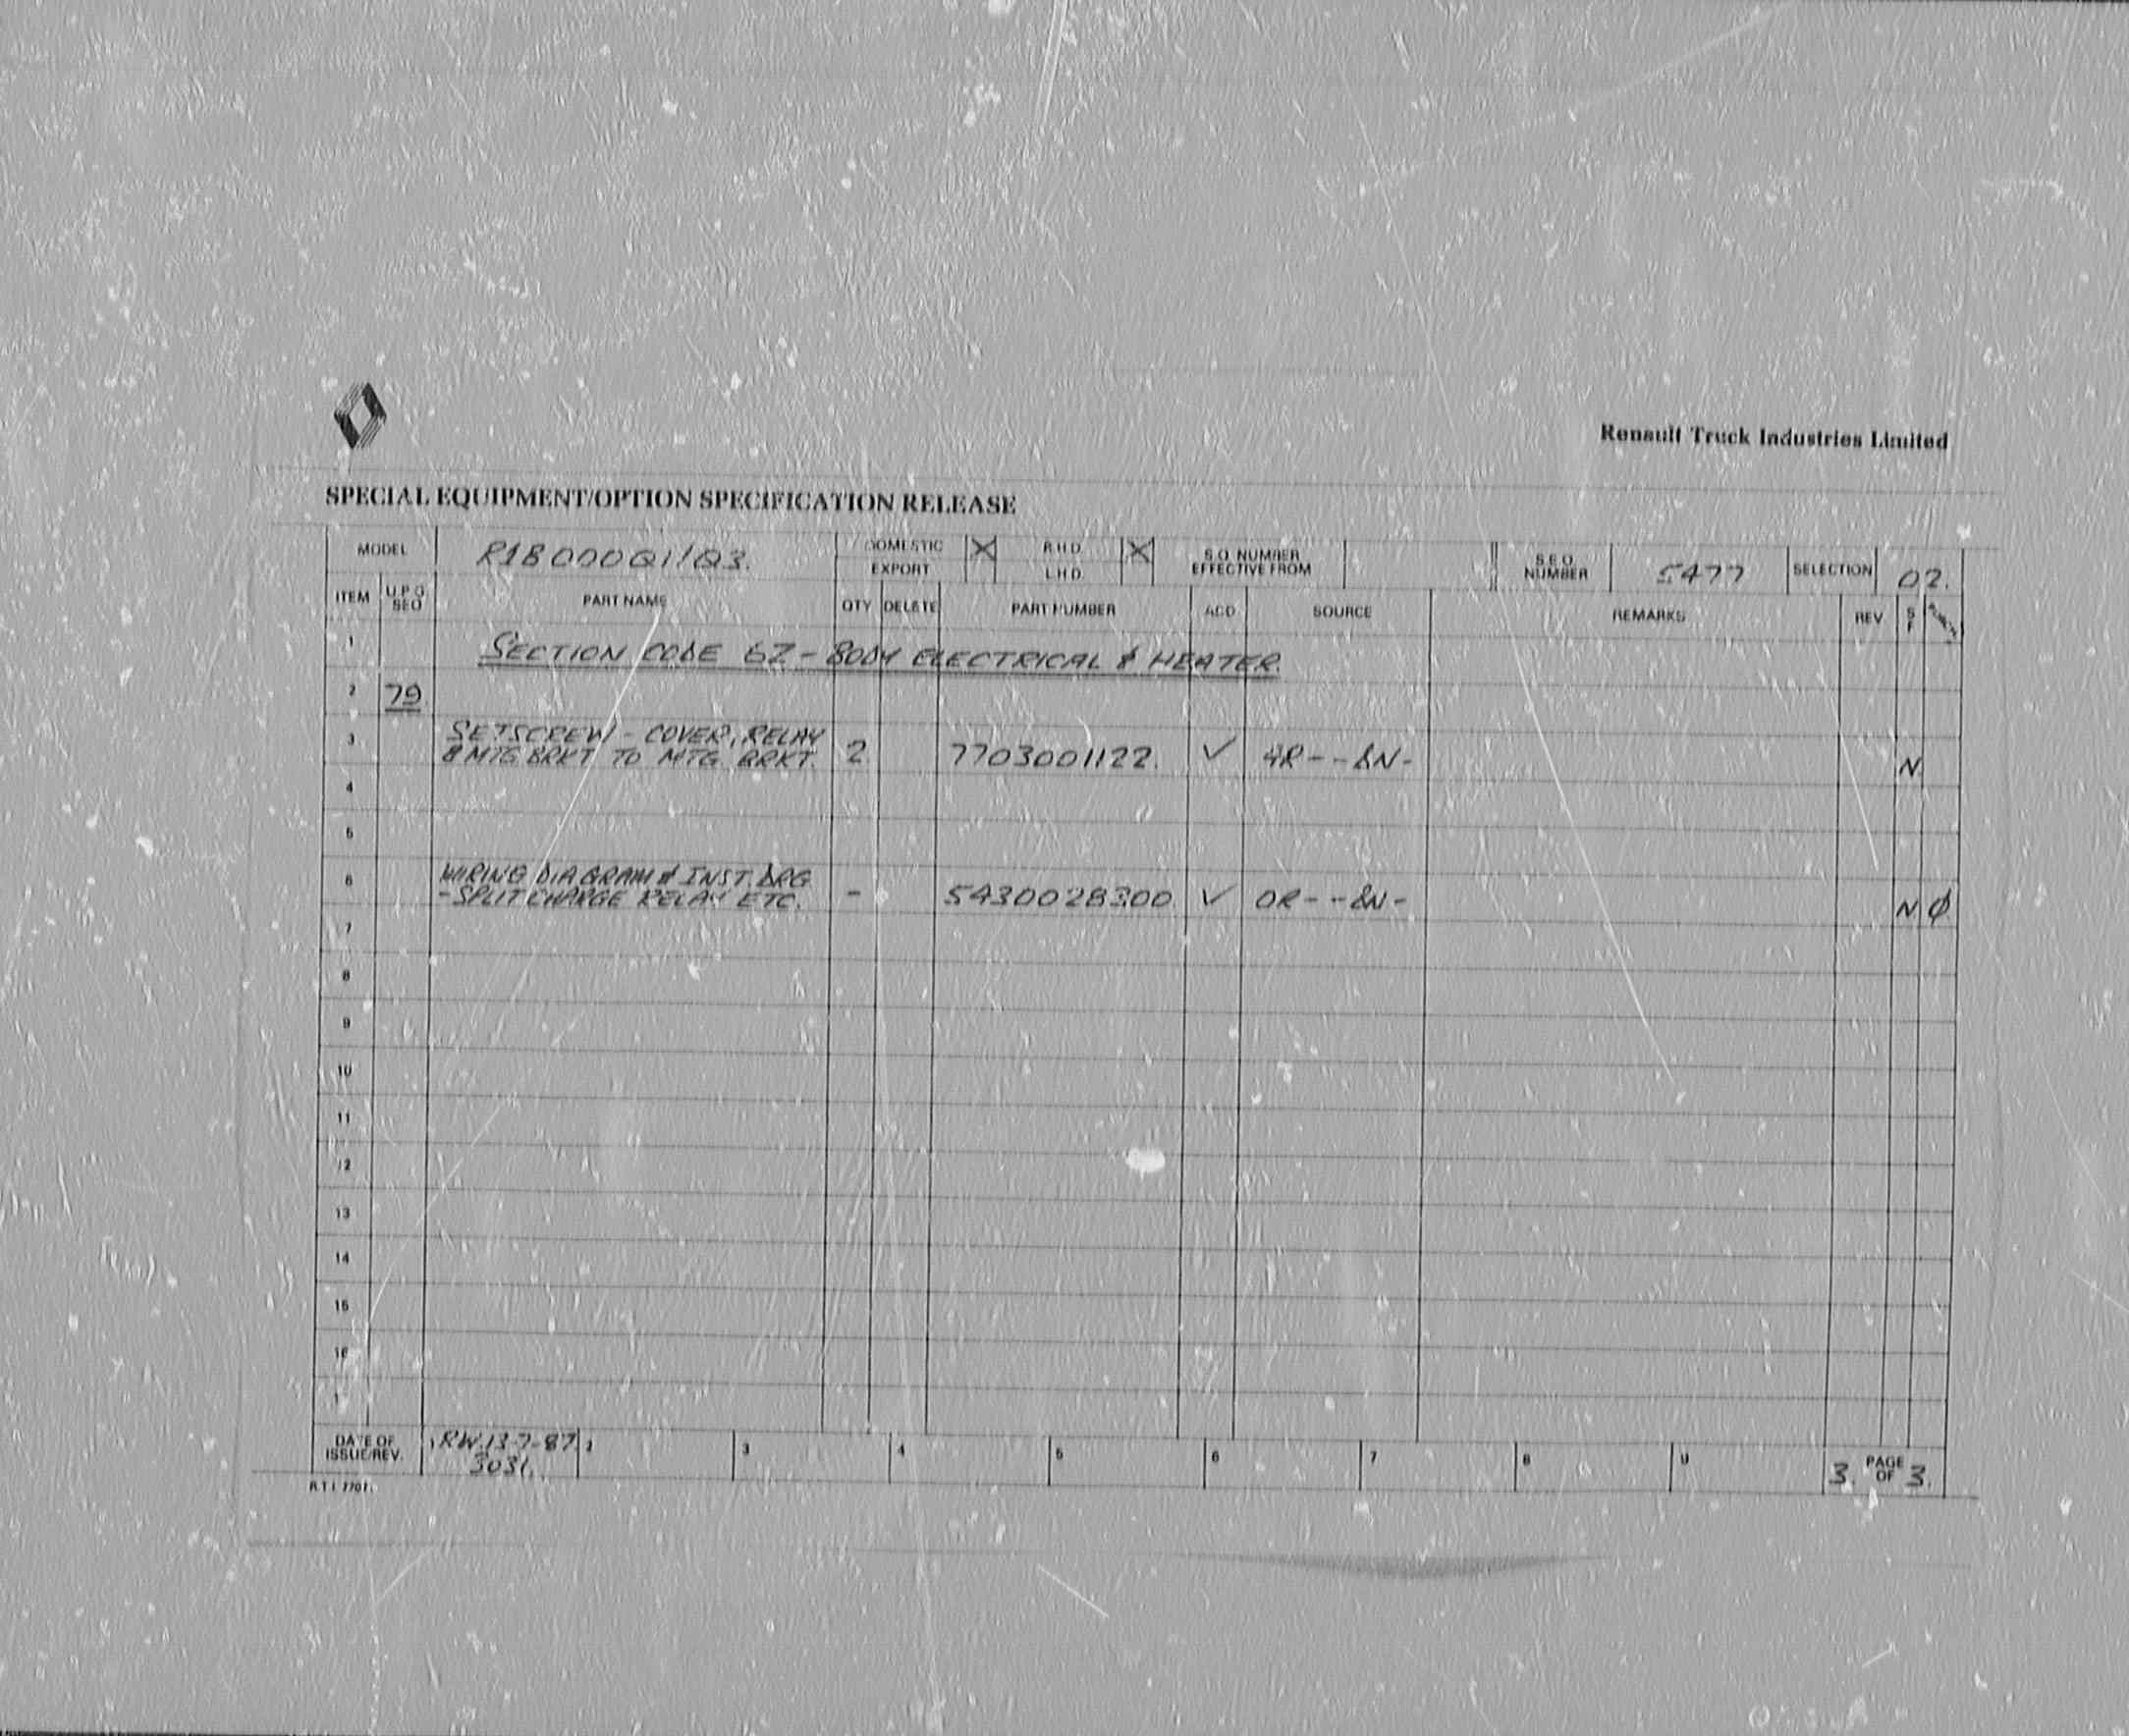 Renault Truck Industries Limited
SPECIAL EQUIPMENT/OPTION SPECIFICATION RELEASE
MODEL R18000Q1/Q3. DOMESTIC X R.H.D. X S.O. NUMBER EFFECTIVE FROM S.E.O. NUMBER 5477 SELECTION 02.
EXPORT L.H.D.
ITEM U.P.G SEQ PART NAME QTY DELETE PART NUMBER ADD SOURCE REMARKS REV S F
1 SECTION CODE 6Z - BODY ELECTRICAL & HEATER.
2 79
3 SETSCREW - COVER, RELAY
& MTG BRKT TO MTG. BRKT. 2. 7703001122. ✓ 4R--&N- N
4
5
6 WIRING DIAGRAM & INST. DRG
- SPLIT CHARGE RELAY ETC. - 5430028300. ✓ OR--&N- N Ø
7
8
9
10
11
12
13
14
15
16
DATE OF ISSUE/REV. 1 RW.13-7-87 2 3 4 5 6 7 8 9 3. PAGE OF 3.
3031.
R.T.I. 7707